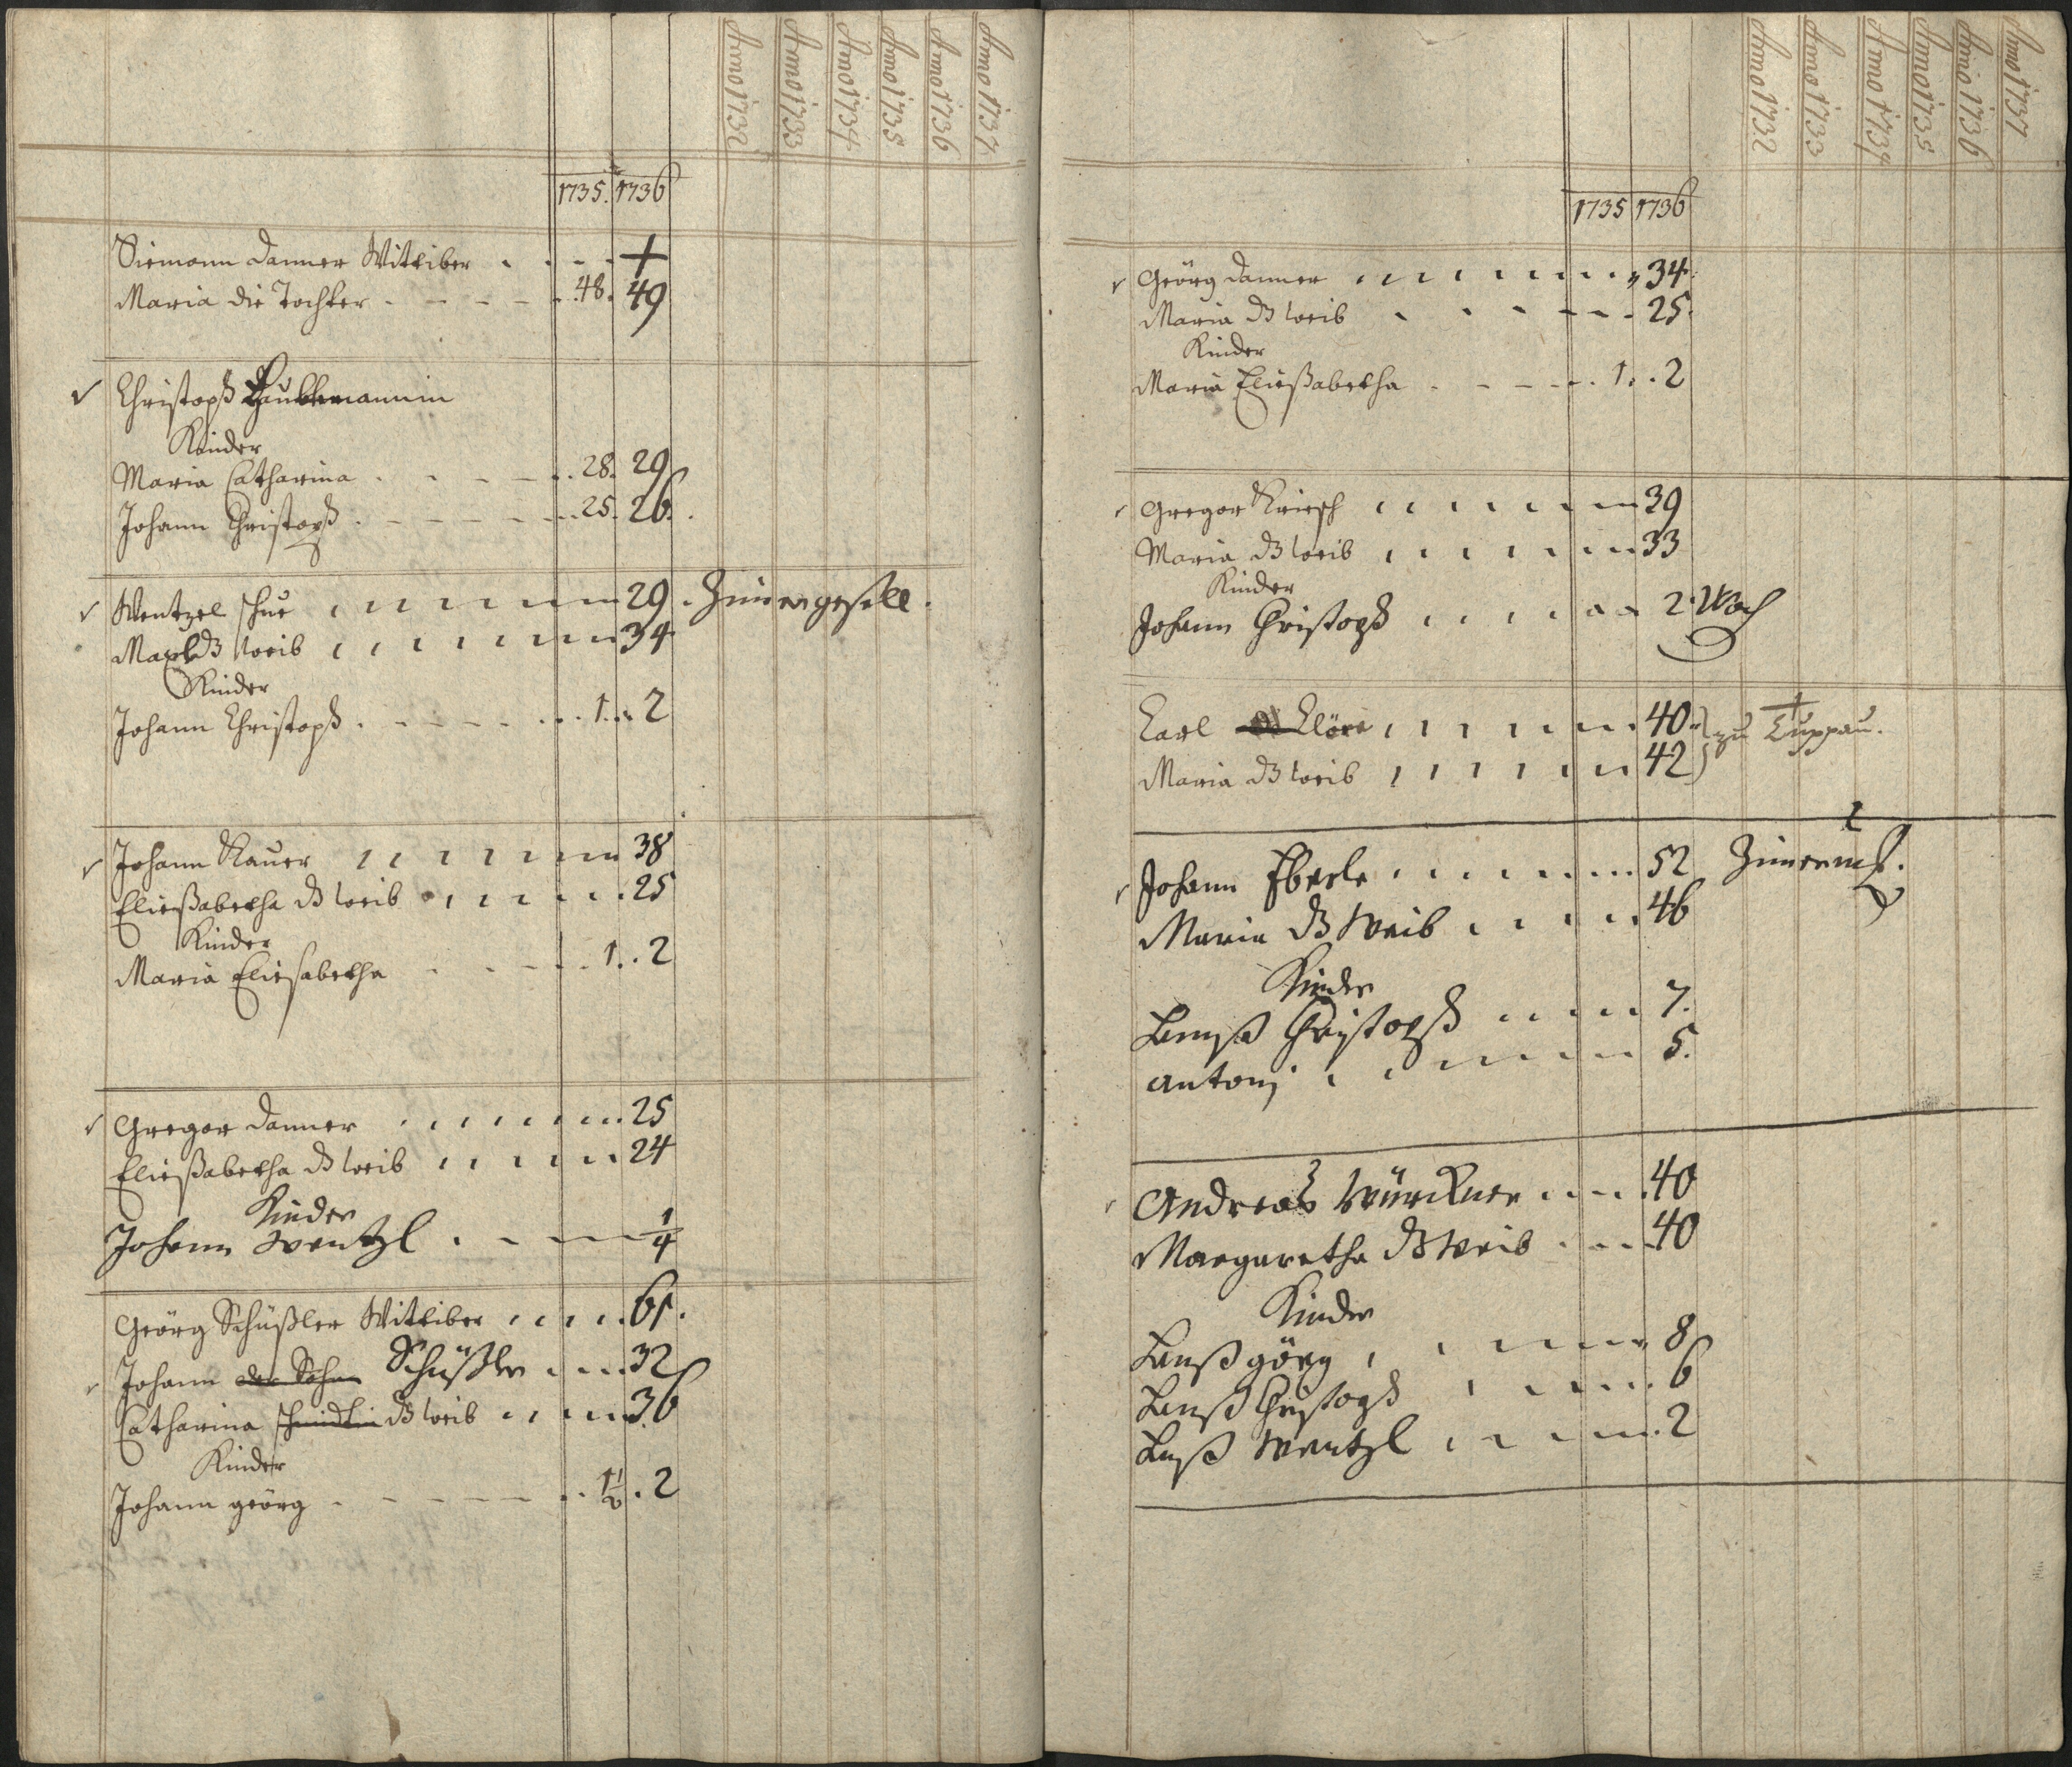 Anno 1732 Anno 1733 Anno 1734 Anno 1735 Anno 1736 Anno 1737
1735. 1736
Siemonn Danner Wittiber . - - - +
Maria die Tochter - - - - . 48. 49
Christoph
Kinder
Maria Catharina . - - - . . 28. 29
Johann Christoph . - - - - . . 25. 26.
Wentzel 29 . Zimergesell.
dß Weib 34
Kinder
Johann Christoph . - - - - . . . 1. . . 2
Johann Rauer 38
Eließabetha dß Weib 25
Kinder
Maria Eliesabetha - - - - . 1. . 2
Gregor Danner 25
Eließabetha dß Weib 24
Kinder
Johann Wentzl . - - - 1/4
Geörg Schüßler Wittiber 61.
Johann der Sohn Schüßler 32
Catharina schmidtin dß Weib 36
Kinder
Johann geörg - - - - - . . 1 1/2 . 2
Anno 1732 Anno 1733 Anno 1734 Anno 1735 Anno 1736 Anno 1737
1735 1736
Geörg Danner 34.
Maria dß Weib - - - - - 25.
Kinder
Maria Eließabetha - - - - . . 1. . 2
Gregor Kriesch 39
Maria dß Weib 33
Kinder
Johann Christoph 2 Woch
Carl 40 zu Luppau.
Maria dß Weib 42
Johann Eberle 52 Zimerm.
Maria dß Weib 46
Kinder
Hannß Christoph 7.
Antonj 5.
Andreas Würckner 40
Margaretha dß Weib 40
Kinder
Hanß görg 8
Hanß Christoph 6
Hanß Wentzl 2